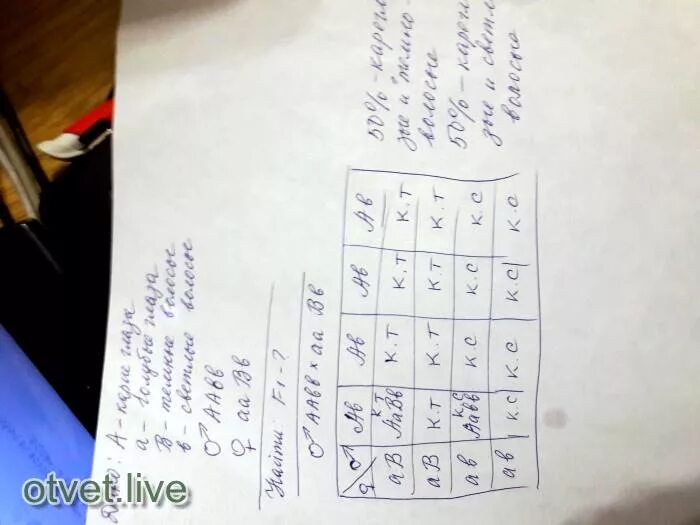 Дано: А - карие глаза
а - голубые глаза
В - темные волосы
в - светлые волосы
♂ ААвв
♀ аа Вв
Найти: F1 - ?
♂ ААвв х аа Вв
♀ ♂ Ав Ав Ав Ав
аВ К.Т АаВв К.Т К.Т К.Т
аВ К.Т К.Т К.Т К.Т
ав К.С Аавв К.С К.С К.С
ав К.С К.С К.С К.С
50% - карегла
зые и темно
волосые
50% - карегл
зые и светл
волосые
otvet.live